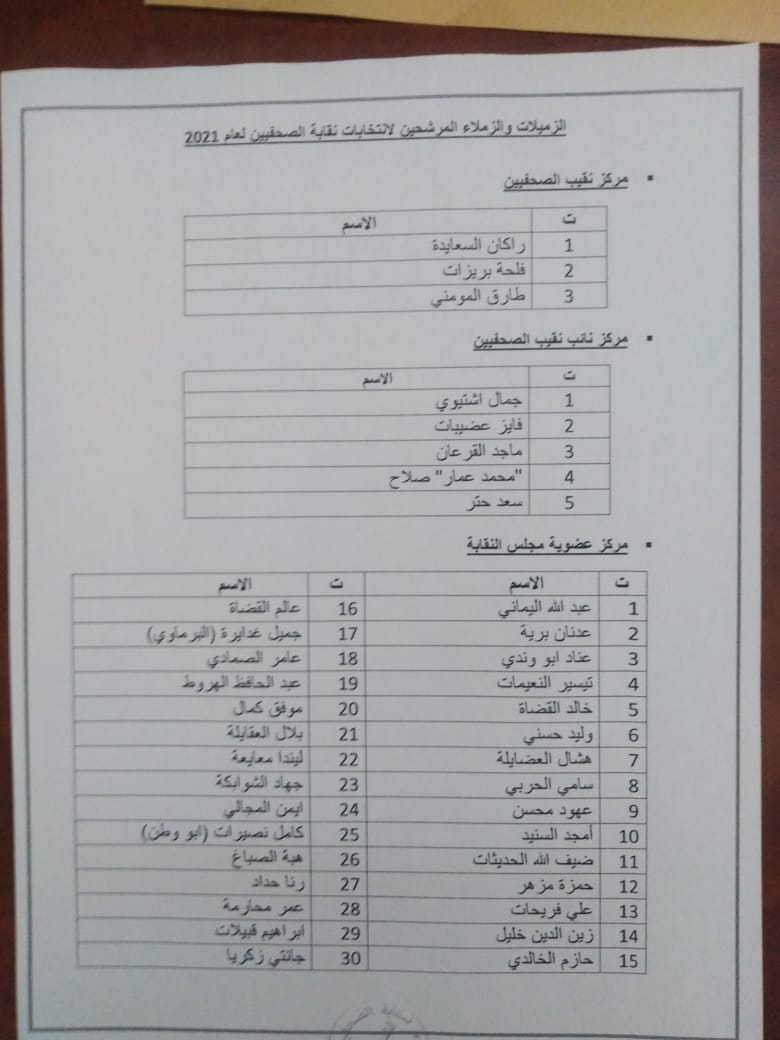 الزميلات والزملاء المرشحين لانتخابات نقابة الصحفيين لعام 2021
▪ مركز نقيب الصحفيين
ت الاسم
1 راكان السعايدة
2 فلحة بريزات
3 طارق المومني
▪ مركز نائب نقيب الصحفيين
ت الاسم
1 جمال اشتيوي
2 فايز عضيبات
3 ماجد القرعان
4 "محمد عمار" صلاح
5 سعد حتر
▪ مركز عضوية مجلس النقابة
ت الاسم ت الاسم
1 عبد الله اليماني 16 عالم القضاة
2 عدنان برية 17 جميل غدايرة (البرماوي)
3 عناد ابو وندي 18 عامر الصمادي
4 تيسير النعيمات 19 عبد الحافظ الهروط
5 خالد القضاة 20 موفق كمال
6 وليد حسني 21 بلال العقايلة
7 هشال العضايلة 22 ليندا معايعة
8 سامي الحربي 23 جهاد الشوابكة
9 عهود محسن 24 ايمن المجالي
10 أمجد السنيد 25 كامل نصيرات (ابو وطن)
11 ضيف الله الحديثات 26 هبة الصباغ
12 حمزة مزهر 27 رنا حداد
13 علي فريحات 28 عمر محارمة
14 زين الدين خليل 29 ابراهيم قبيلات
15 حازم الخالدي 30 جانتي زكريا